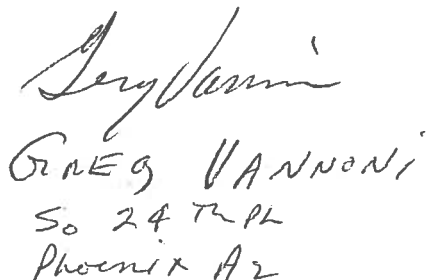 Greg Vannoni
GREG VANNONI
So 24 Th PL
Phoenix Az